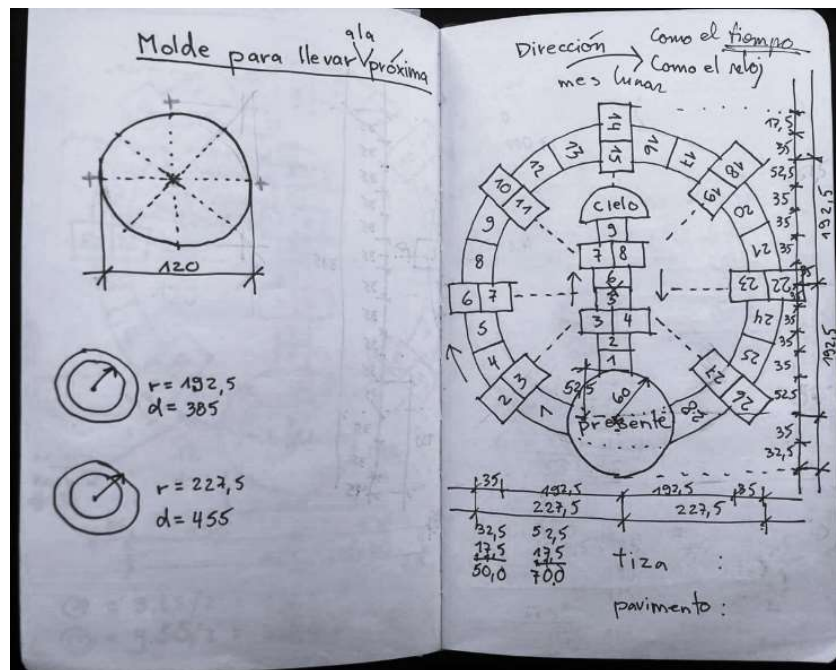 a la
Molde para llevar próxima
120
r = 192,5
d = 385
r = 227,5
d = 455
Dirección
Como el tiempo
Como el reloj
mes lunar
14
15
13
12
10
11
9
8
6 7
5
4
3
2
1
16
17
18
19
20
21
23 22
24
25
27
26
28
cielo
9
7 8
6
5
3 4
2
1
52,5
60
presente
17,5
35
52,5
35
35
35
35
35
35
35
525
35
32,5
192,5
192,5
35 192,5 192,5 35
227,5 227,5
32,5 52,5
17,5 17,5
50,0 70,0
tiza :
pavimento :